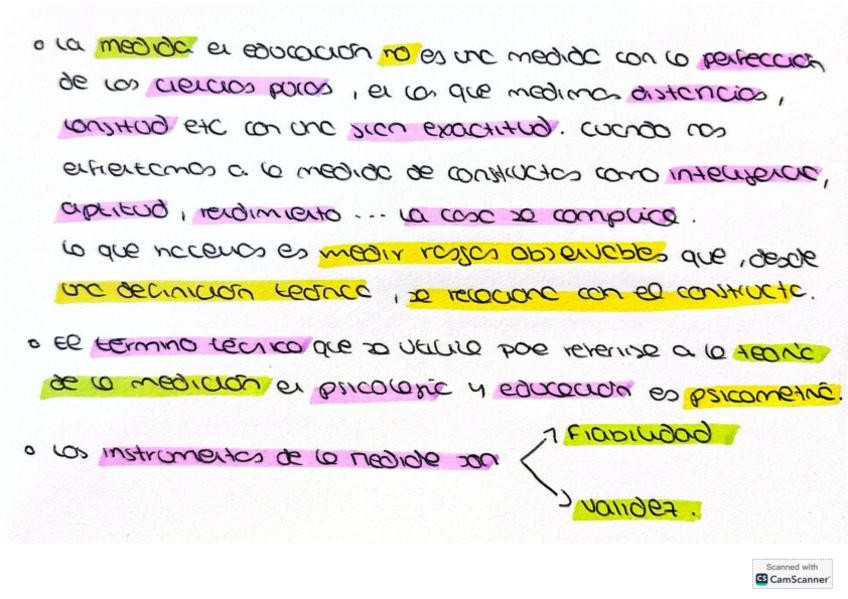 • La medida en educación no es una medida con la perfección
de las ciencias puras, en las que medimos distancias,
longitud etc con una gran exactitud. Cuando nos
enfrentamos a la medida de constructos como inteligencia,
aptitud, rendimiento ... la cosa se complica.
Lo que hacemos es medir rasgos observables que, desde
una definición teórica, se relaciona con el constructo.
• El término técnico que se utiliza para referirse a la teoría
de la medición en psicología y educación es psicometría.
• Los instrumentos de la medida son
Fiabilidad
Validez.
Scanned with
CS CamScanner